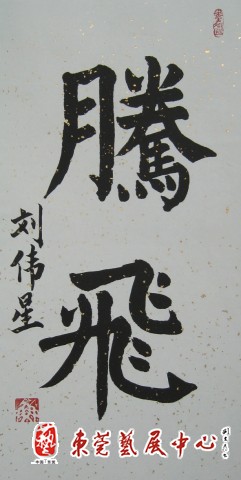 騰飛
刘伟星
東莞藝展中心